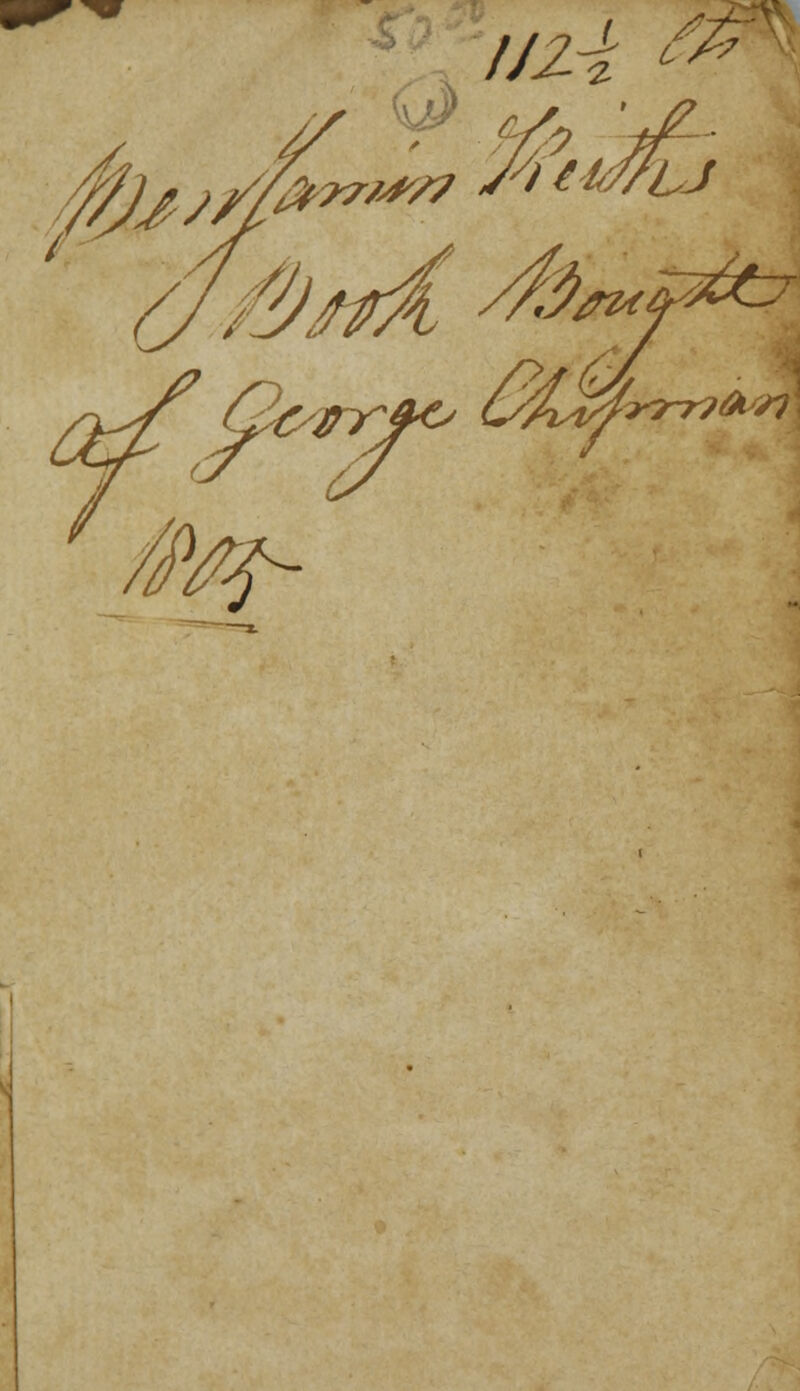 50 00
112½ cts
Benjamin Keiths
Book Bought
of George Chipman
1805